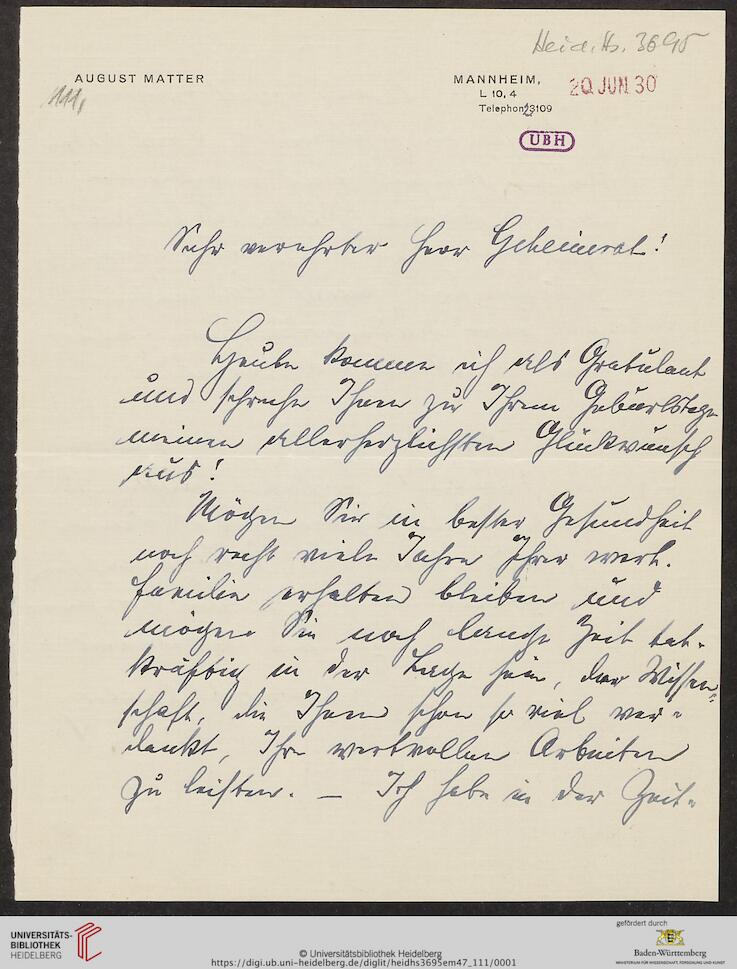 Heid. Hs. 3695
AUGUST MATTER
MANNHEIM,
L 10, 4
Telephon 23109
20. JUN. 30
111,
UBH
Sehr verehrter Herr Geheimrat!
Heute komme ich als Gratulant
und spreche Ihnen zu Ihrem Geburtstage
meinen allerherzlichsten Glückwunsch
aus!
Mögen Sie in bester Gesundheit
noch recht viele Jahre Ihrer wert.
Familie erhalten bleiben und
mögen Sie noch lange Zeit tat-
kräftig in der Lage sein, der Wissen-
schaft, die Ihnen schon so viel ver-
dankt, Ihre wertvollen Arbeiten
zu leisten. — Ich habe in der Zeit-
UNIVERSITÄTS-
BIBLIOTHEK
HEIDELBERG
© Universitätsbibliothek Heidelberg
https://digi.ub.uni-heidelberg.de/diglit/heidhs3695em47_111/0001
gefördert durch
Baden-Württemberg
MINISTERIUM FÜR WISSENSCHAFT, FORSCHUNG UND KUNST